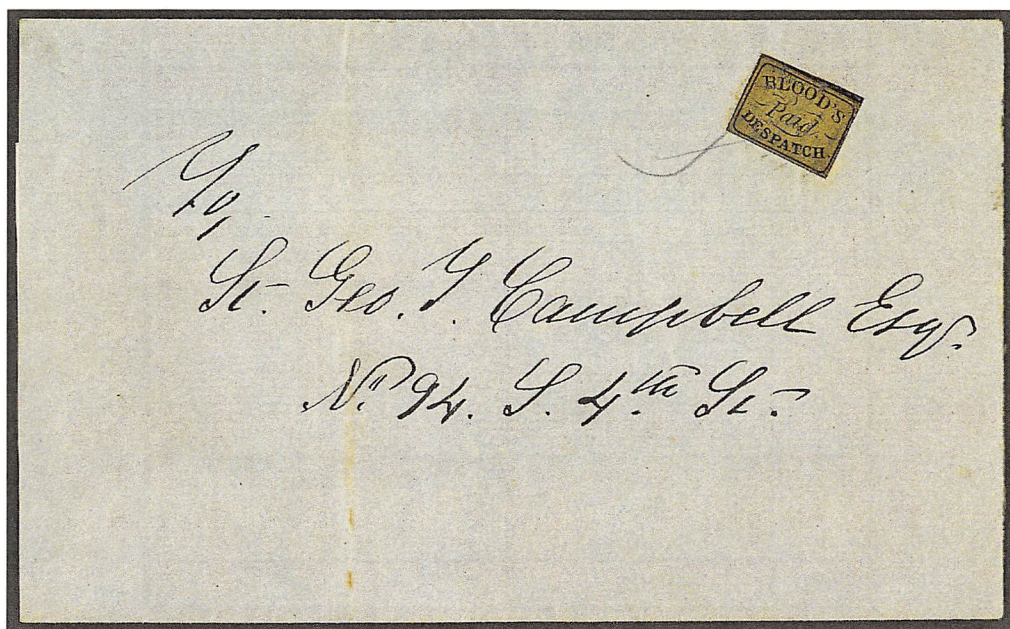 BLOOD'S
Paid
DESPATCH.
To,
St. Geo. T. Campbell Esqr.
No. 94. S. 4.th St.